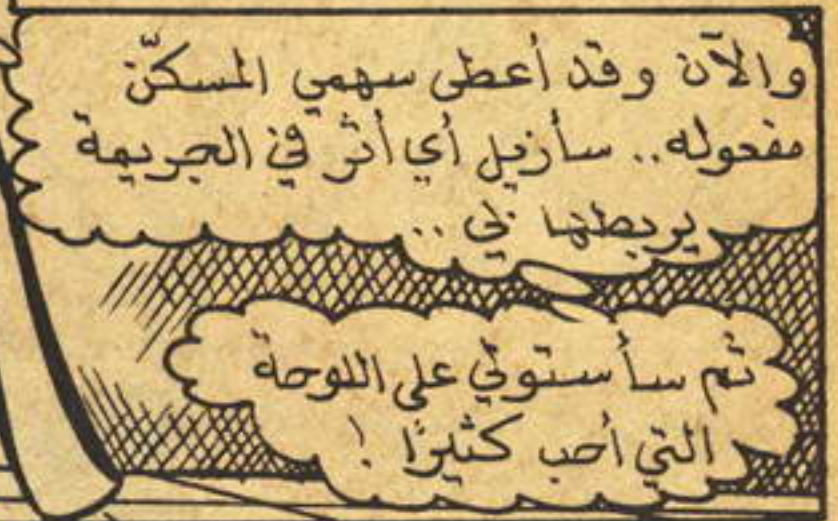 والآن وقد أعطى سهمي المسكّن
مفعوله.. سأزيل أي أثر في الجريمة
يربطها بي ..
ثم سأستولي على اللوحة
التي أحب كثيرًا !